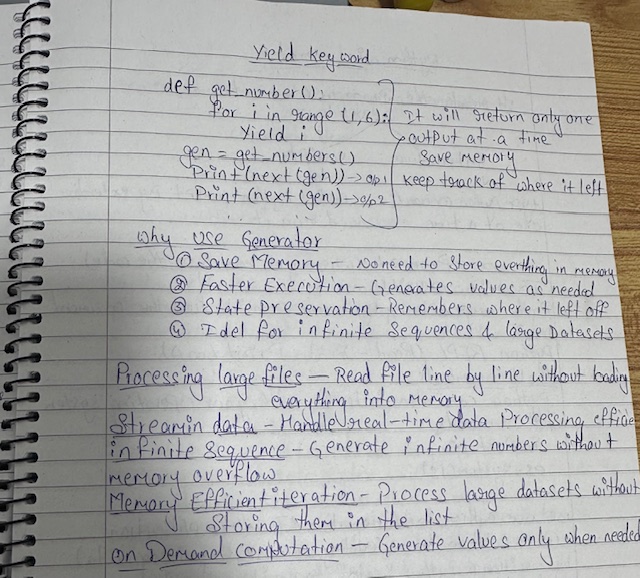 Yield keyword
def get_number():
for i in range (1,6):
yield i
gen = get_numbers()
Print(next(gen)) → o/p 1
Print(next(gen)) → o/p 2
It will return only one
output at a time
Save memory
keep track of where it left
Why use Generator
① Save Memory - No need to store everthing in memory
② Faster Execution - Generates values as needed
③ State Preservation - Remembers where it left off
④ Idel for infinite Sequences & large Datasets
Processing large files - Read file line by line without loading
everything into memory
Streamin data - Handle real-time data Processing efficie
infinite Sequence - Generate infinite numbers without
memory overflow
Memory Efficient iteration - Process large datasets without
Storing them in the list
on Demand computation - Generate values only when needed